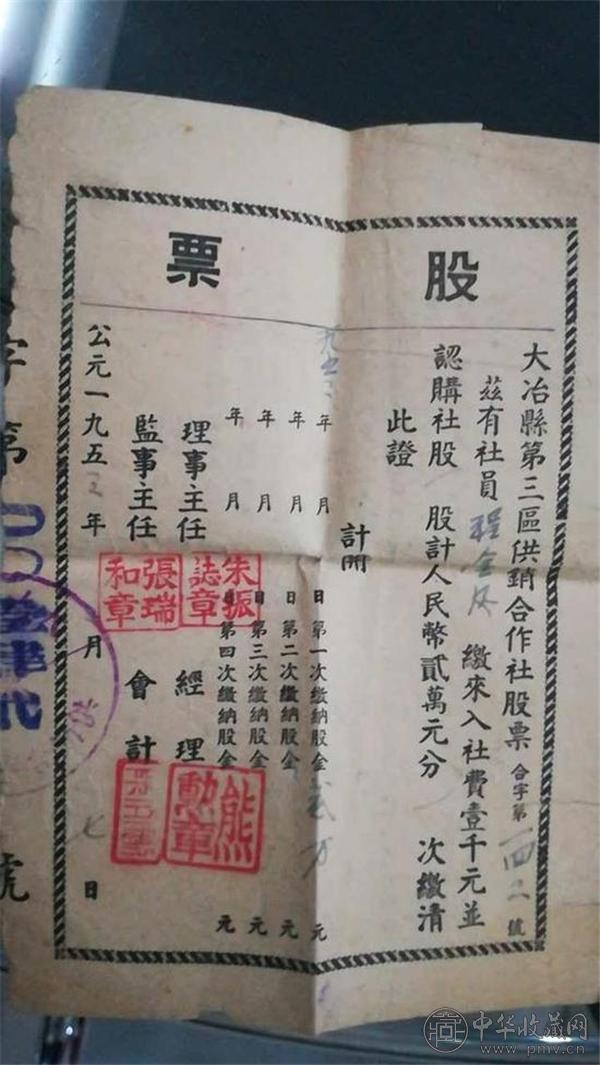 股票
大冶縣第三區供銷合作社股票 合字第一四二號
茲有社員程金 繳來入社費壹千元並
認購社股 股計人民幣貳萬元分 次繳清
此證
計開
九五三年 月 日第一次繳納股金貳万元
年 月 日第二次繳納股金 元
年 月 日第三次繳納股金 元
年 月 日第四次繳納股金 元
理事主任 朱振誌章 經理 熊勳章
監事主任 張瑞和章 會計
公元一九五三年 月 七日
字第 號
中华收藏网
www.pmv.cn